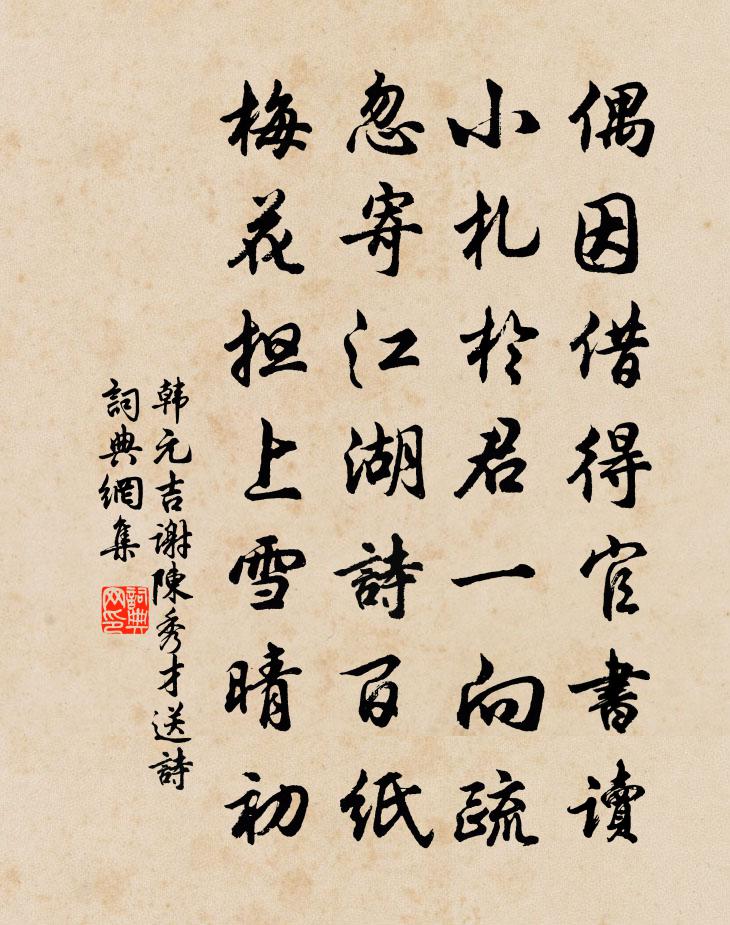 偶因借得官書读
小札於君一向疏
忽寄江湖詩百紙
梅花担上雪晴初
韩元吉谢陳秀才送詩
詞典網集
詞典
网印